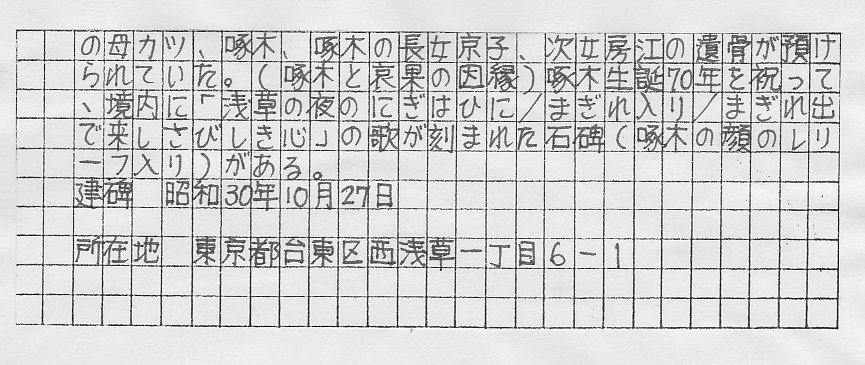 の母カツ、啄木、啄木の長女京子、次女房江の遺骨が預け
られていた。(啄木と哀果の因縁)啄木生誕70年を祝って
、境内に「浅草の夜のにぎはひに/まぎれ入り/まぎれ出
で来しさびしき心」の歌が刻まれた石碑(啄木の顔のレリ
ーフ入り)がある。
建碑 昭和30年10月27日
所在地 東京都台東区西浅草一丁目6-1